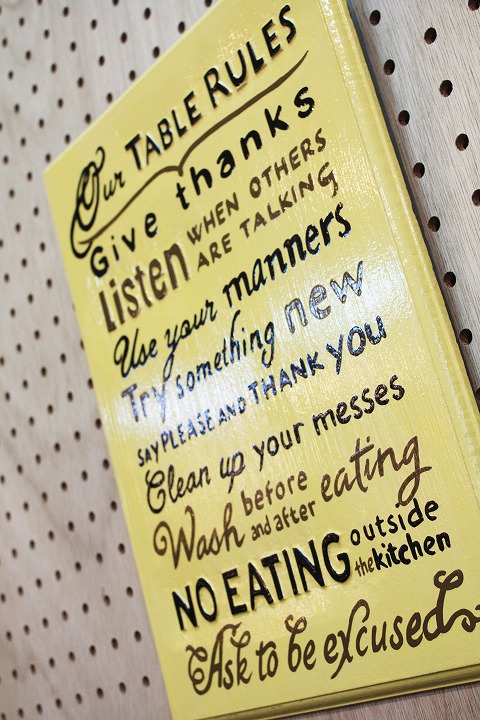 Our TABLE RULES
Give thanks
Listen WHEN OTHERS ARE TALKING
Use your manners
Try something new
SAY PLEASE AND THANK YOU
Clean up your messes
Wash before and after eating
NO EATING outside the kitchen
Ask to be excused